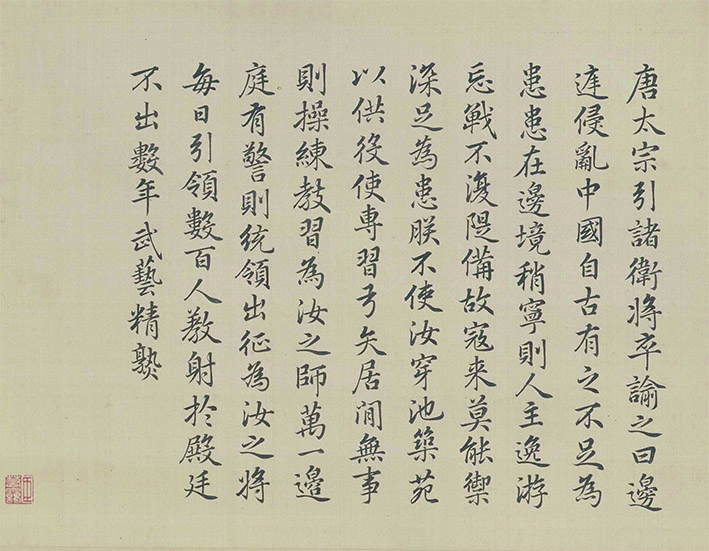 唐太宗引諸衛將卒諭之曰邊
遽侵亂中國自古有之不足為
患患在邊境稍寧則人主逸游
忘戰不復隄備故寇来莫能禦
深足為患朕不使汝穿池築苑
以供役使専習弓矢居閒無事
則操練教習為汝之師萬一邊
庭有警則統領出征為汝之將
每日引領數百人教射扵殿廷
不出數年武藝精熟